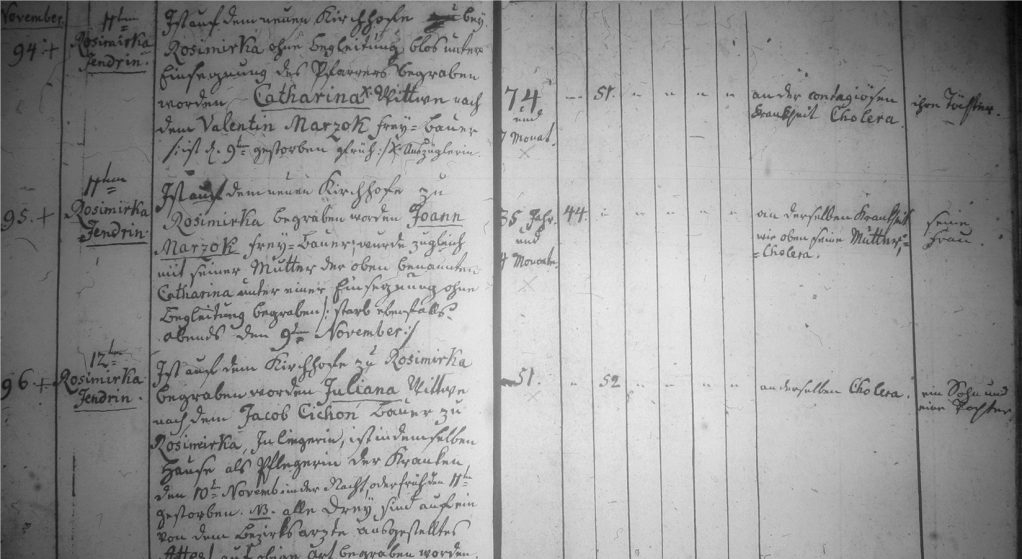 November.
94. +
11ten
Rosimirka
Jendrin.
Ist auf dem neuen Kirchhofe bey
Rosimirka ohne Begleitung blos unter
Einsegnung des Pfarrers begraben
worden Catharina x Wittwe nach
dem Valentin Marzok frey-bauer
/: ist d. 9t gestorben früh :/ x Auszüglerin.
74.
und
7 Monat.
51.
an der contagiösen
Krankheit Cholera.
ihre Töchter.
95. +
11ten
Rosimirka
Jendrin
Ist auf dem neuen Kirchhofe zu
Rosimirka begraben worden Joann
Marzok frey-bauer; wurde zugleich
mit seiner Mutter der oben benannten
Catharina unter einer Einsegnung ohne
Begleitung begraben /: starb ebenfalls
abends den 9ten November :/
35 Jahr.
und
4 Monate.
44.
an derselben Krankheit
wie oben seine Mutter,
Cholera.
seine
Frau
96 +
12ten
Rosimirka
Jendrin.
Ist auf dem Kirchhofe zu Rosimirka
begraben worden Juliana Wittwe
nach dem Jacob Cichon bauer zu
Rosimirka, Inliegerin, ist in demselben
Hause als Pflegerin der Kranken
den 10t Novemb: in der Nacht, oder früh den 11ten
gestorben. NB. alle drey sind auf ein
von dem Bezirksarzte ausgestelltes
Attest auf obige Art begraben worden.
51.
52
an derselben Cholera.
ein Sohn und
eine Tochter